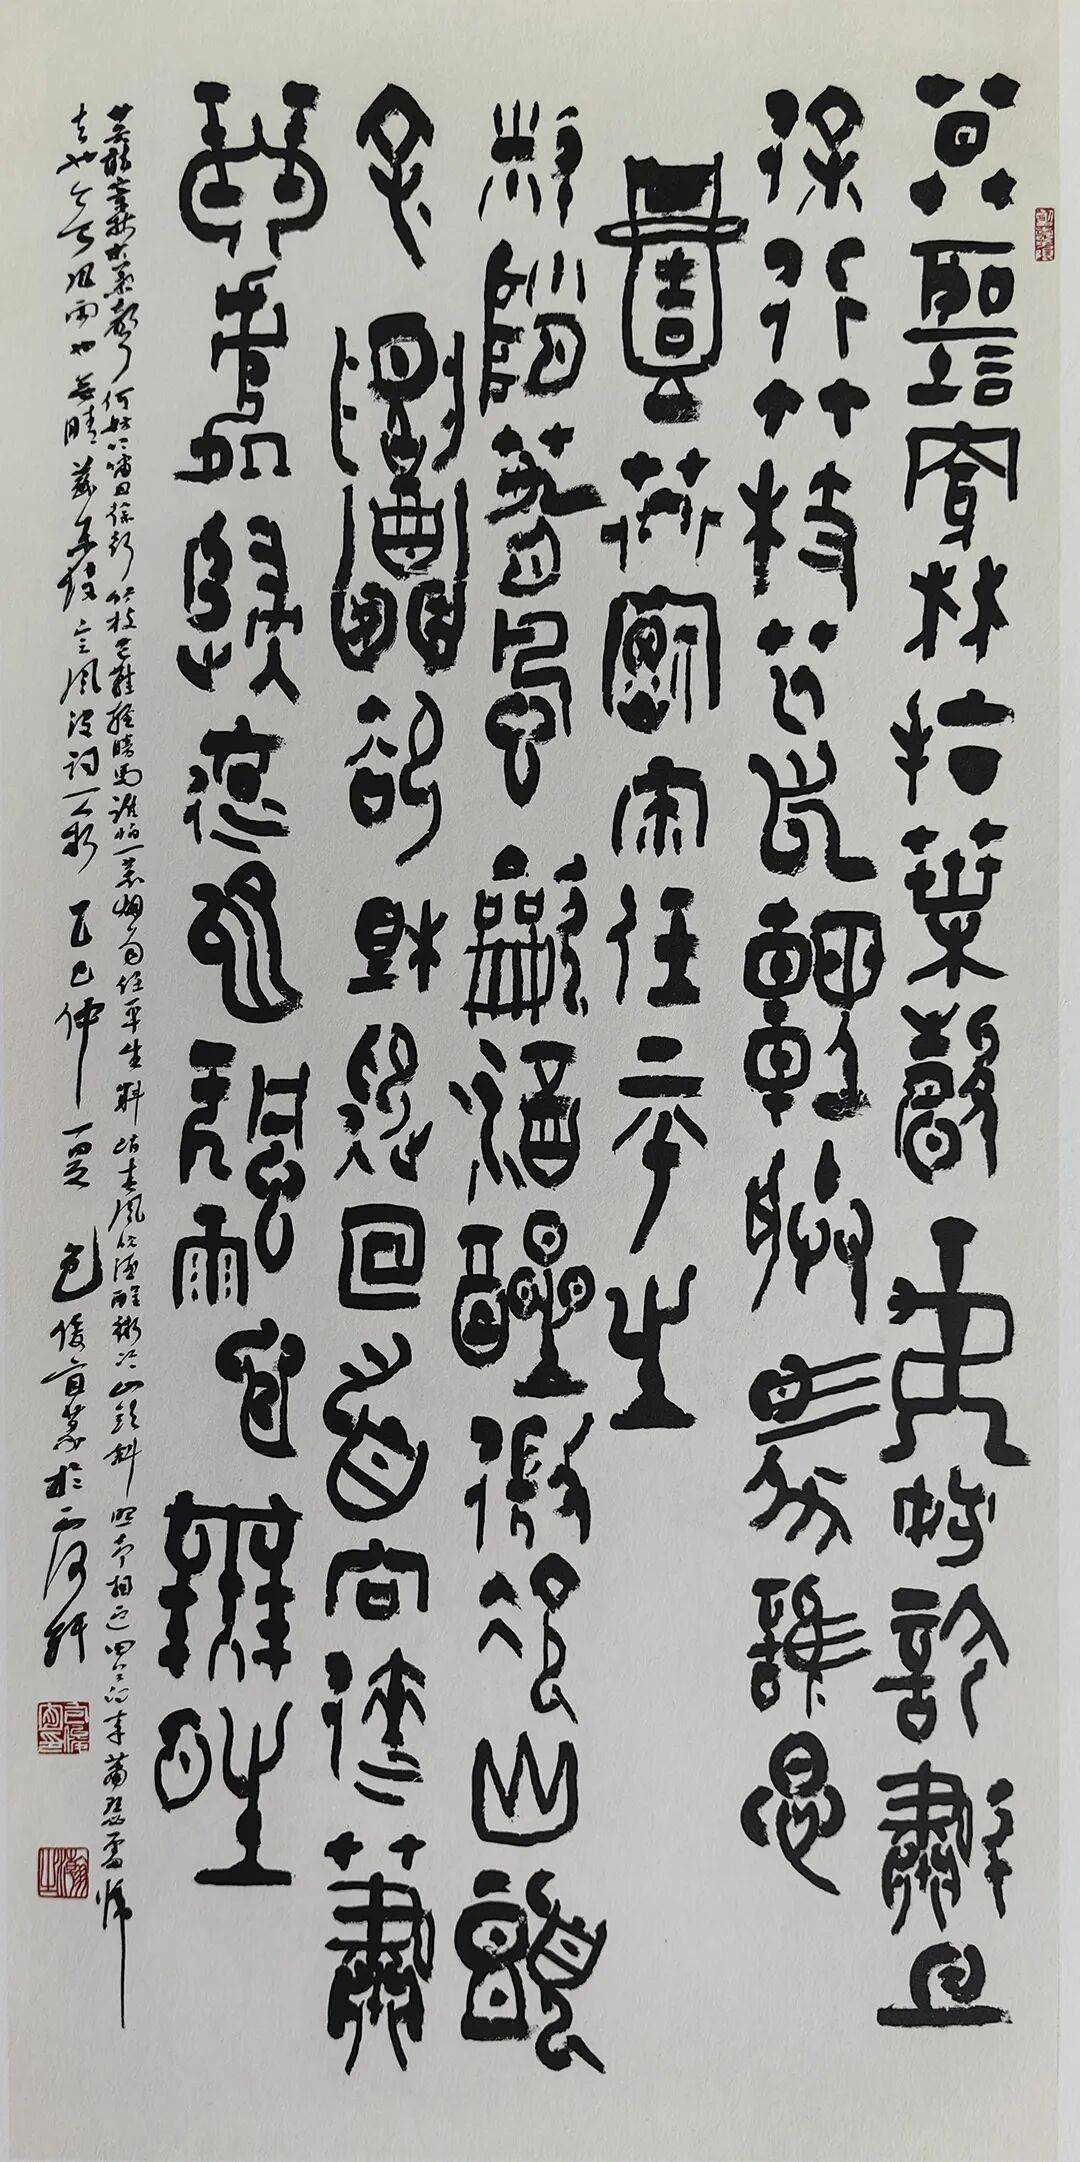 莫聽穿林打葉聲何妨吟嘯且
徐行竹杖芒鞋輕勝馬誰怕
一蓑煙雨任平生
料峭春風吹酒醒微冷山頭
斜照卻相迎回首向來蕭
瑟處歸去也無風雨也無晴
莫聽穿林打葉聲何妨吟嘯且徐行竹杖芒鞋輕勝馬誰怕一蓑煙雨任平生料峭春風吹酒醒微冷山頭斜照卻相迎回首向來蕭瑟處歸
去也無風雨也無晴蘇東坡定風波詞一首乙巳仲夏包俊宜篆於軒